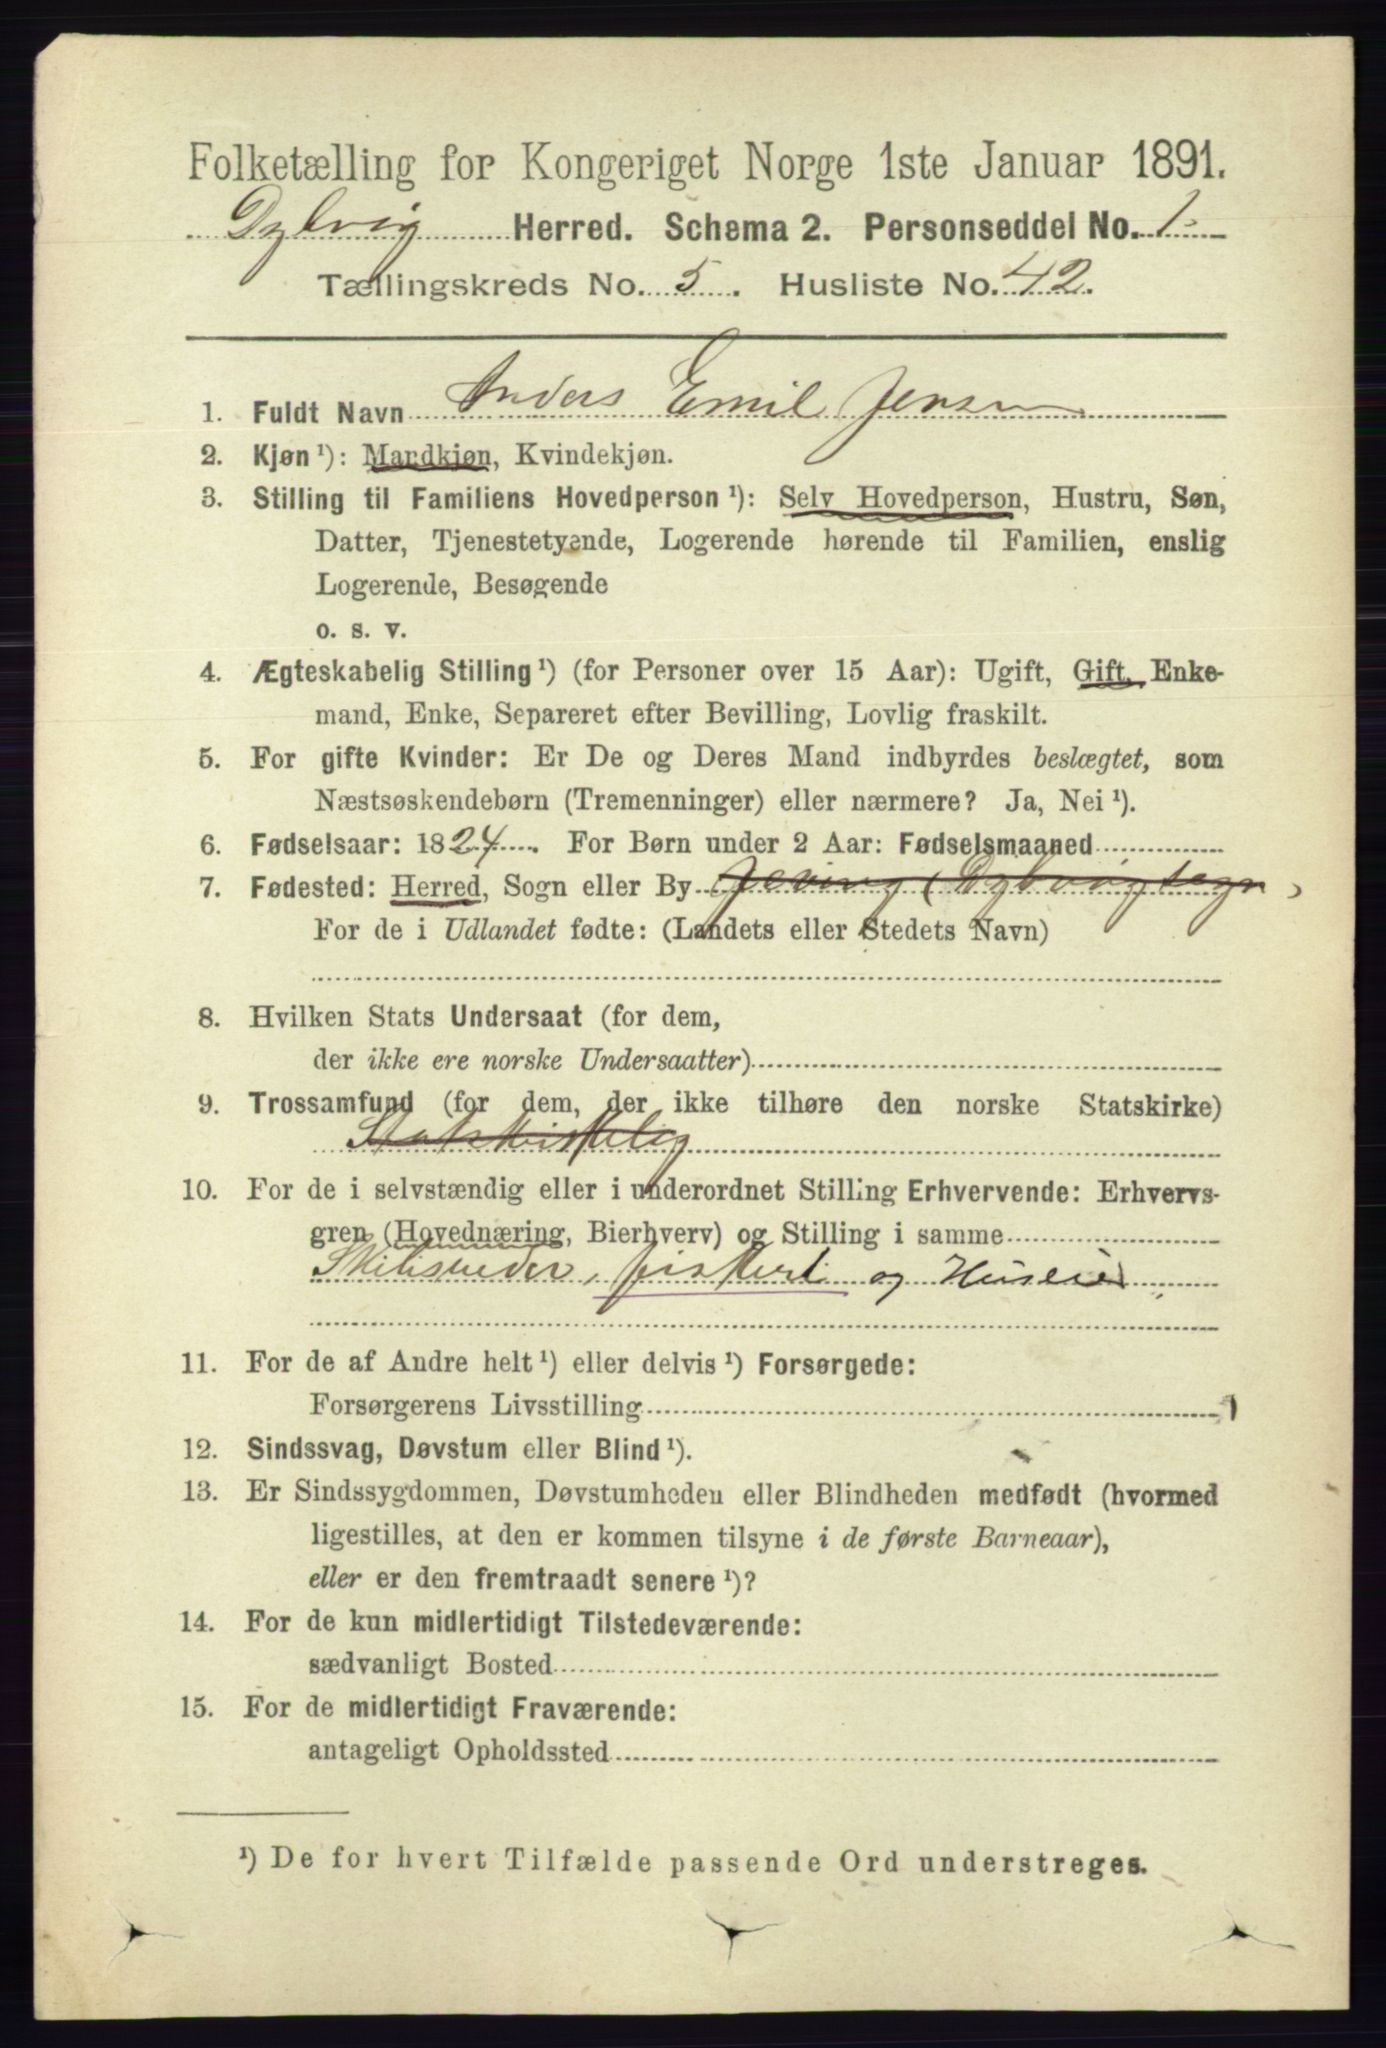 Folketælling for Kongeriget Norge 1ste Januar 1891.
Dybvig Herred. Schema 2. Personseddel No. 1.
Tællingskreds No. 5. Husliste No. 42.
1. Fuldt Navn Anders Emil Jensen
2. Kjøn ¹): Mandkjøn, Kvindekjøn.
3. Stilling til Familiens Hovedperson ¹): Selv Hovedperson, Hustru, Søn,
Datter, Tjenestetyende, Logerende hørende til Familien, enslig
Logerende, Besøgende
o. s. v.
4. Ægteskabelig Stilling ¹) (for Personer over 15 Aar): Ugift, Gift, Enke-
mand, Enke, Separeret efter Bevilling, Lovlig fraskilt.
5. For gifte Kvinder: Er De og Deres Mand indbyrdes beslægtet, som
Næstsøskendebørn (Tremenninger) eller nærmere? Ja, Nei ¹).
6. Fødselsaar: 1824. For Børn under 2 Aar: Fødselsmaaned
7. Fødested: Herred, Sogn eller By Jeving (Dybvig sogn)
For de i Udlandet fødte: (Landets eller Stedets Navn)
8. Hvilken Stats Undersaat (for dem,
der ikke ere norske Undersaatter)
9. Trossamfund (for dem, der ikke tilhøre den norske Statskirke)
Statskirkelig
10. For de i selvstændig eller i underordnet Stilling Erhvervende: Erhvervs-
gren (Hovednæring, Bierhverv) og Stilling i samme
fiskeri og Huseier
11. For de af Andre helt ¹) eller delvis ¹) Forsørgede:
Forsørgerens Livsstilling
12. Sindssvag, Døvstum eller Blind ¹).
13. Er Sindssygdommen, Døvstumheden eller Blindheden medfødt (hvormed
ligestilles, at den er kommen tilsyne i de første Barneaar),
eller er den fremtraadt senere ¹)?
14. For de kun midlertidigt Tilstedeværende:
sædvanligt Bosted
15. For de midlertidigt Fraværende:
antageligt Opholdssted
¹) De for hvert Tilfælde passende Ord understreges.